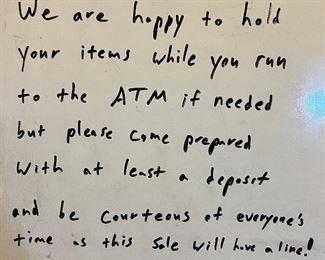 We are happy to hold
your items while you run
to the ATM if needed
but please come prepared
with at least a deposit
and be courteous of everyone's
time as this sale will have a line!